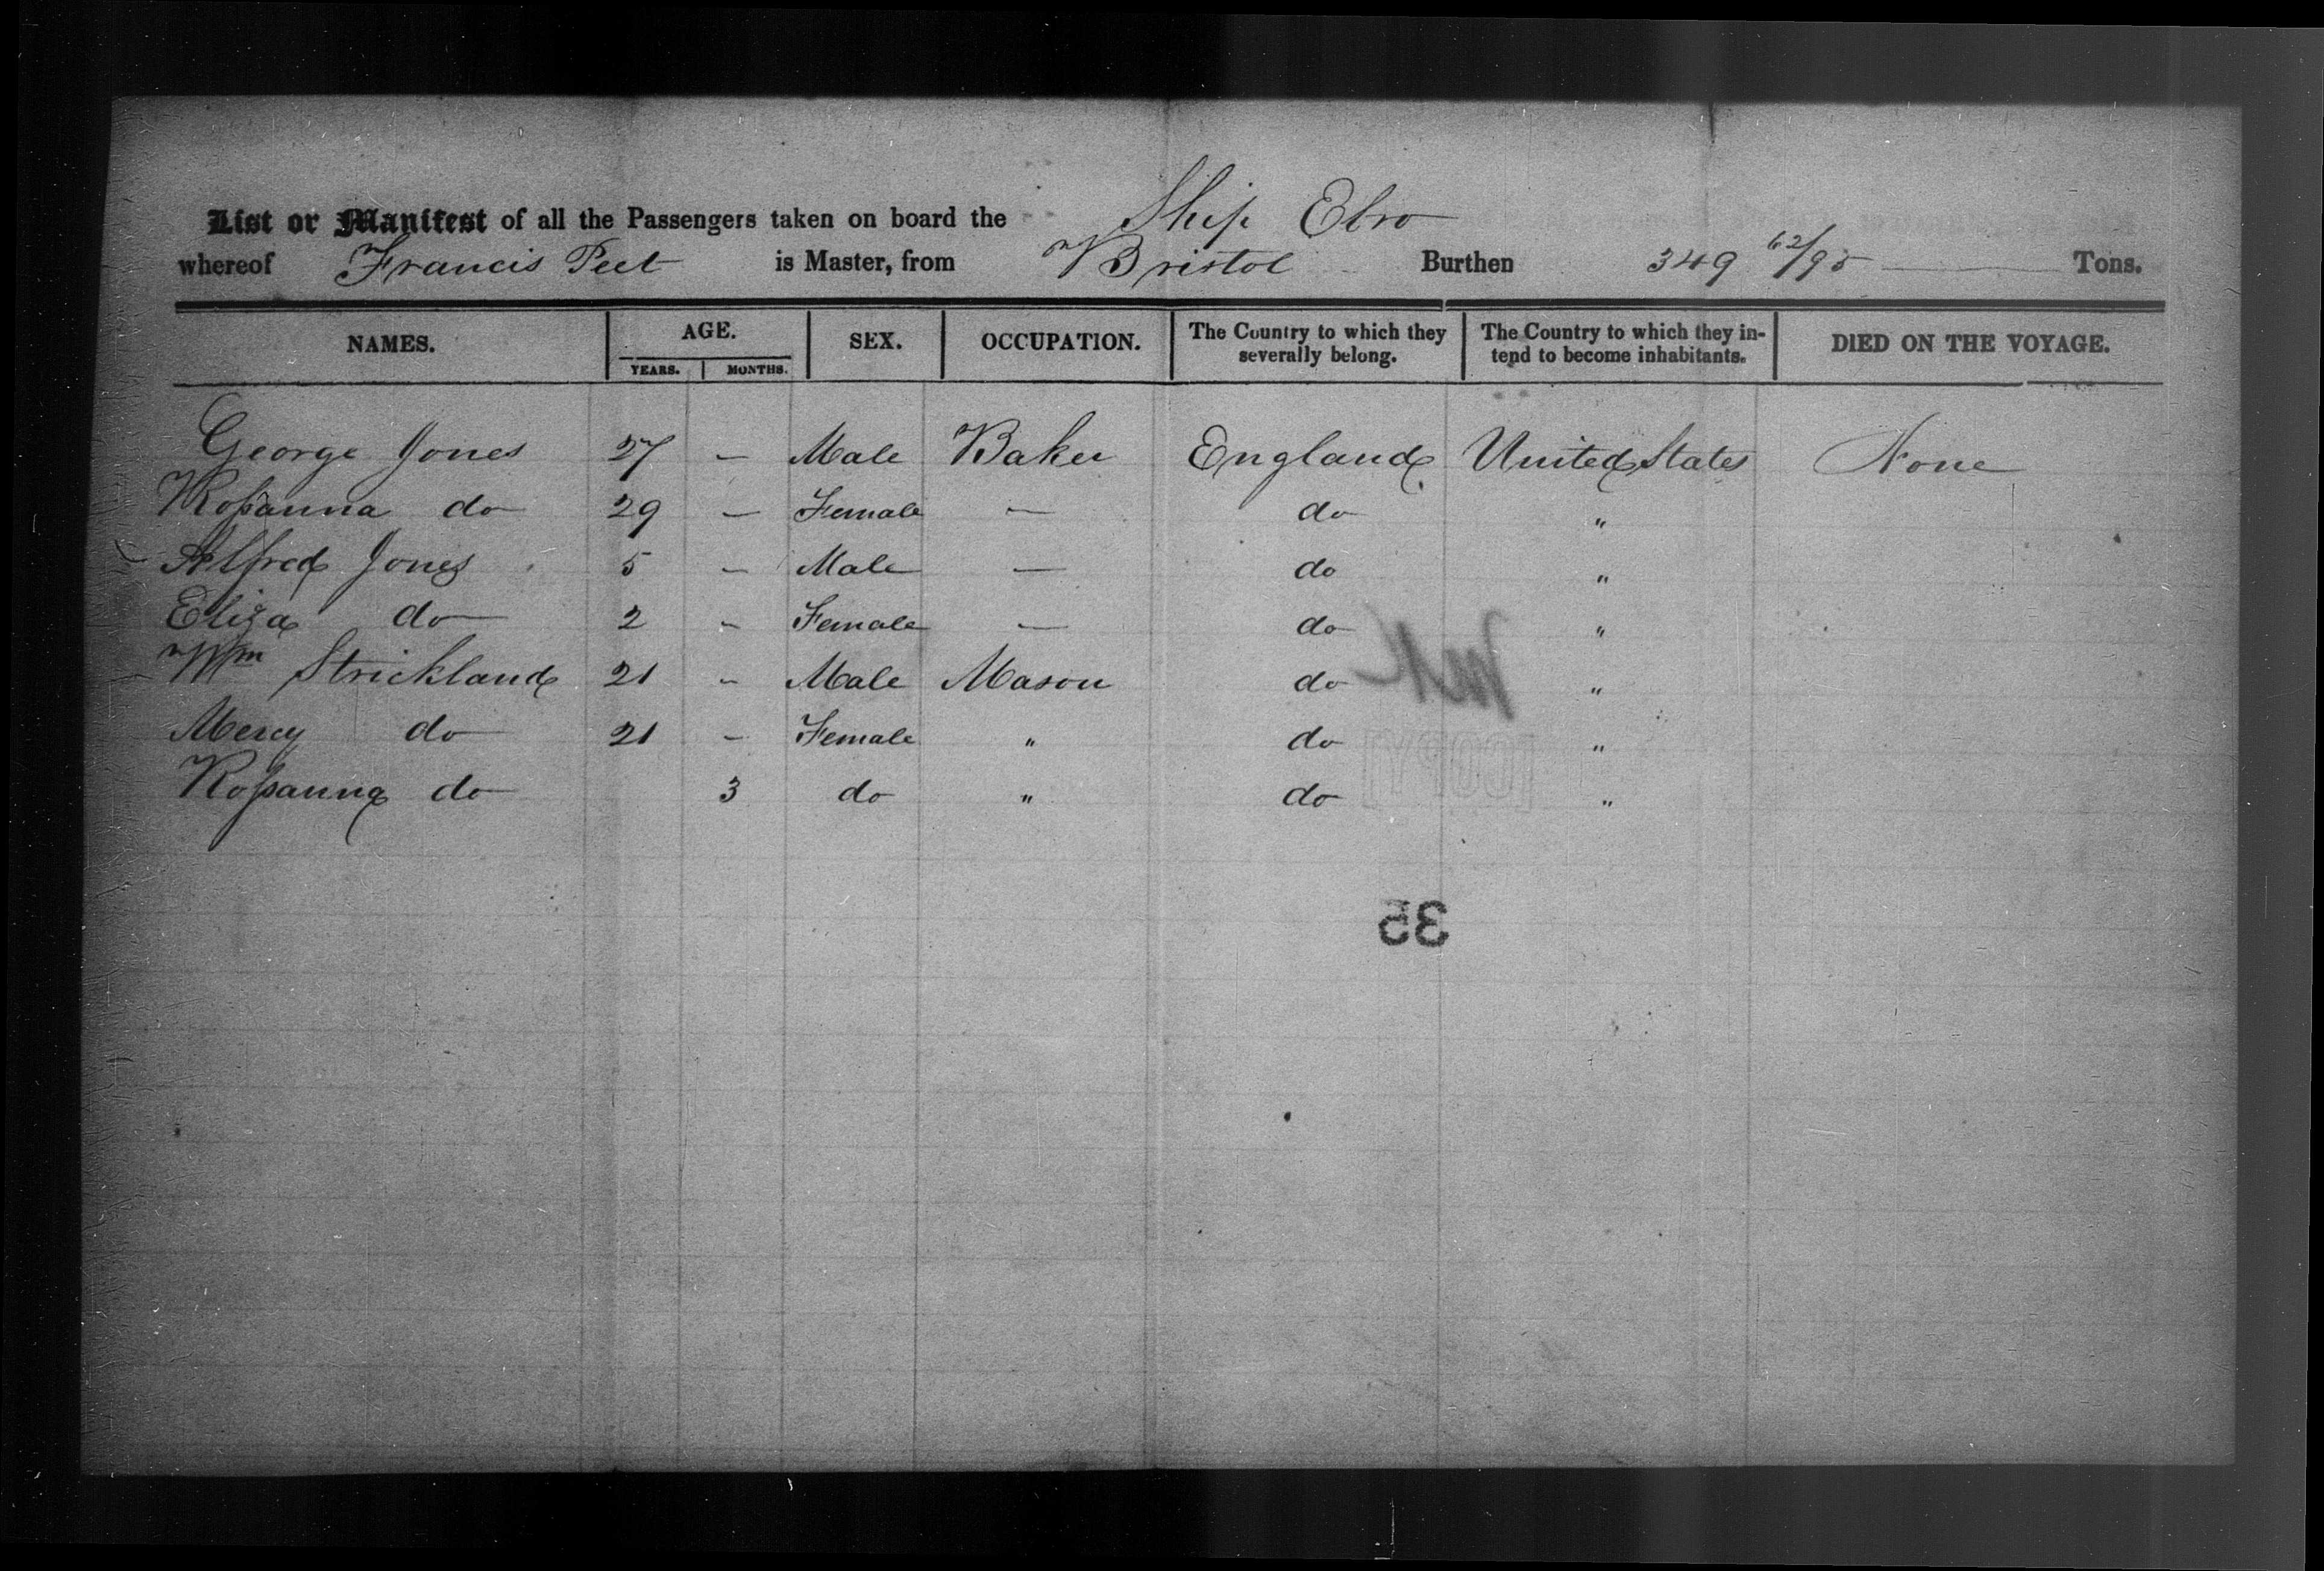 List or Manifest of all the Passengers taken on board the Ship Ebro
whereof Francis Peet is Master, from Bristol Burthen 349 62/95 Tons.
NAMES. AGE. SEX. OCCUPATION. The Country to which they severally belong. The Country to which they in-tend to become inhabitants. DIED ON THE VOYAGE.
YEARS. MONTHS.
George Jones 27 – Male Baker England United States None
Rossanna do 29 – Female — do "
Alfred Jones 5 – Male — do "
Eliza do 2 – Female — do "
Wm Strickland 21 – Male Mason do "
Mercy do 21 – Female " do "
Rossanna do 3 do " do "
[COPY]
35